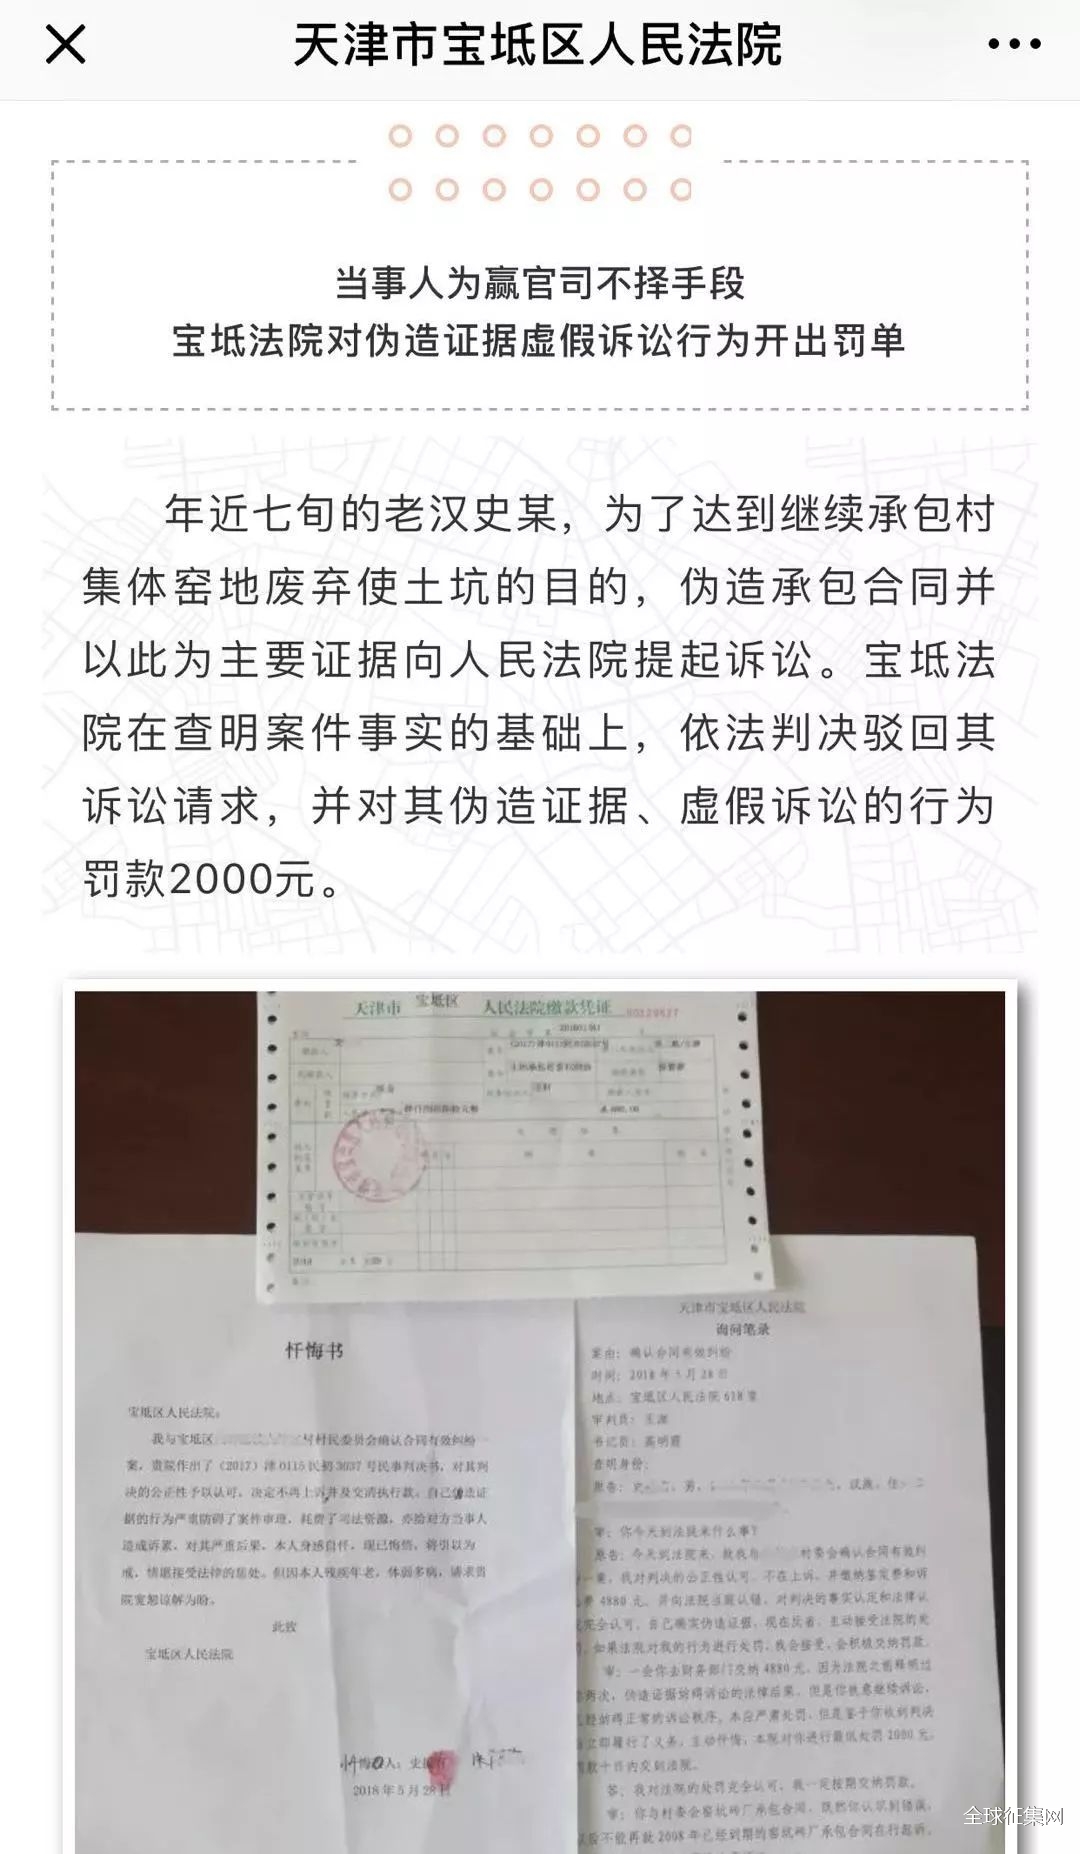 天津市宝坻区人民法院
当事人为赢官司不择手段
宝坻法院对伪造证据虚假诉讼行为开出罚单
年近七旬的老汉史某，为了达到继续承包村
集体窑地废弃使土坑的目的，伪造承包合同并
以此为主要证据向人民法院提起诉讼。宝坻法
院在查明案件事实的基础上，依法判决驳回其
诉讼请求，并对其伪造证据、虚假诉讼的行为
罚款2000元。
天津市 宝坻区 人民法院缴款凭证
忏悔书
宝坻区人民法院：
我与宝坻区 村村民委员会确认合同有效纠纷一
案，贵院作出了（2017）津0115民初3037号民事判决书，对其判
决的公正性予以认可，决定不再上诉并及交清执行款。自己伪造证
据的行为严重防碍了案件审理，耗费了司法资源，亦给对方当事人
造成诉累，对其严重后果，本人身感自忏，现已悔悟，将引以为
戒，情愿接受法律的惩处。但因本人残疾年老，体弱多病，请求贵
院宽恕谅解为盼。
此致
宝坻区人民法院
2018年5月28日
天津市宝坻区人民法院
询问笔录
案由：确认合同有效纠纷
时间：2018年5月28日
地点：宝坻区人民法院618室
审判员：王
书记员：高明霞
查明身份：
原告：史 男， 汉族，住
审：你今天到法院来什么事？
原告：今天到法院来，就我与 村委会确认合同有效纠
一案，我对判决的公正性认可，不在上诉，并缴纳鉴定费和诉
费4880元，并向法院当庭认错，对判决的事实认定和法律认
完全认可，自己确实伪造证据，现在反省，主动接受法院的处
如果法院对我的行为进行处罚，我会接受，会积极交纳罚款。
审：一会你去财务部门交纳4880元，因为法院之前释明过
两次，伪造证据妨碍诉讼的法律后果，但是你执意继续诉讼，
妨碍正常的诉讼秩序，本应严肃处罚，但是鉴于你收到判决
立即履行了义务，主动忏悔，本院对你进行最低处罚2000元，
款十日内交到法院。
答：我对法院的处罚完全认可，我一定按期交纳罚款。
审：你与村委会窑坑砖厂承包合同，既然你认识到错误，
后不能再就2008年已经到期的窑坑砖厂承包合同在行起诉，
全球征集网